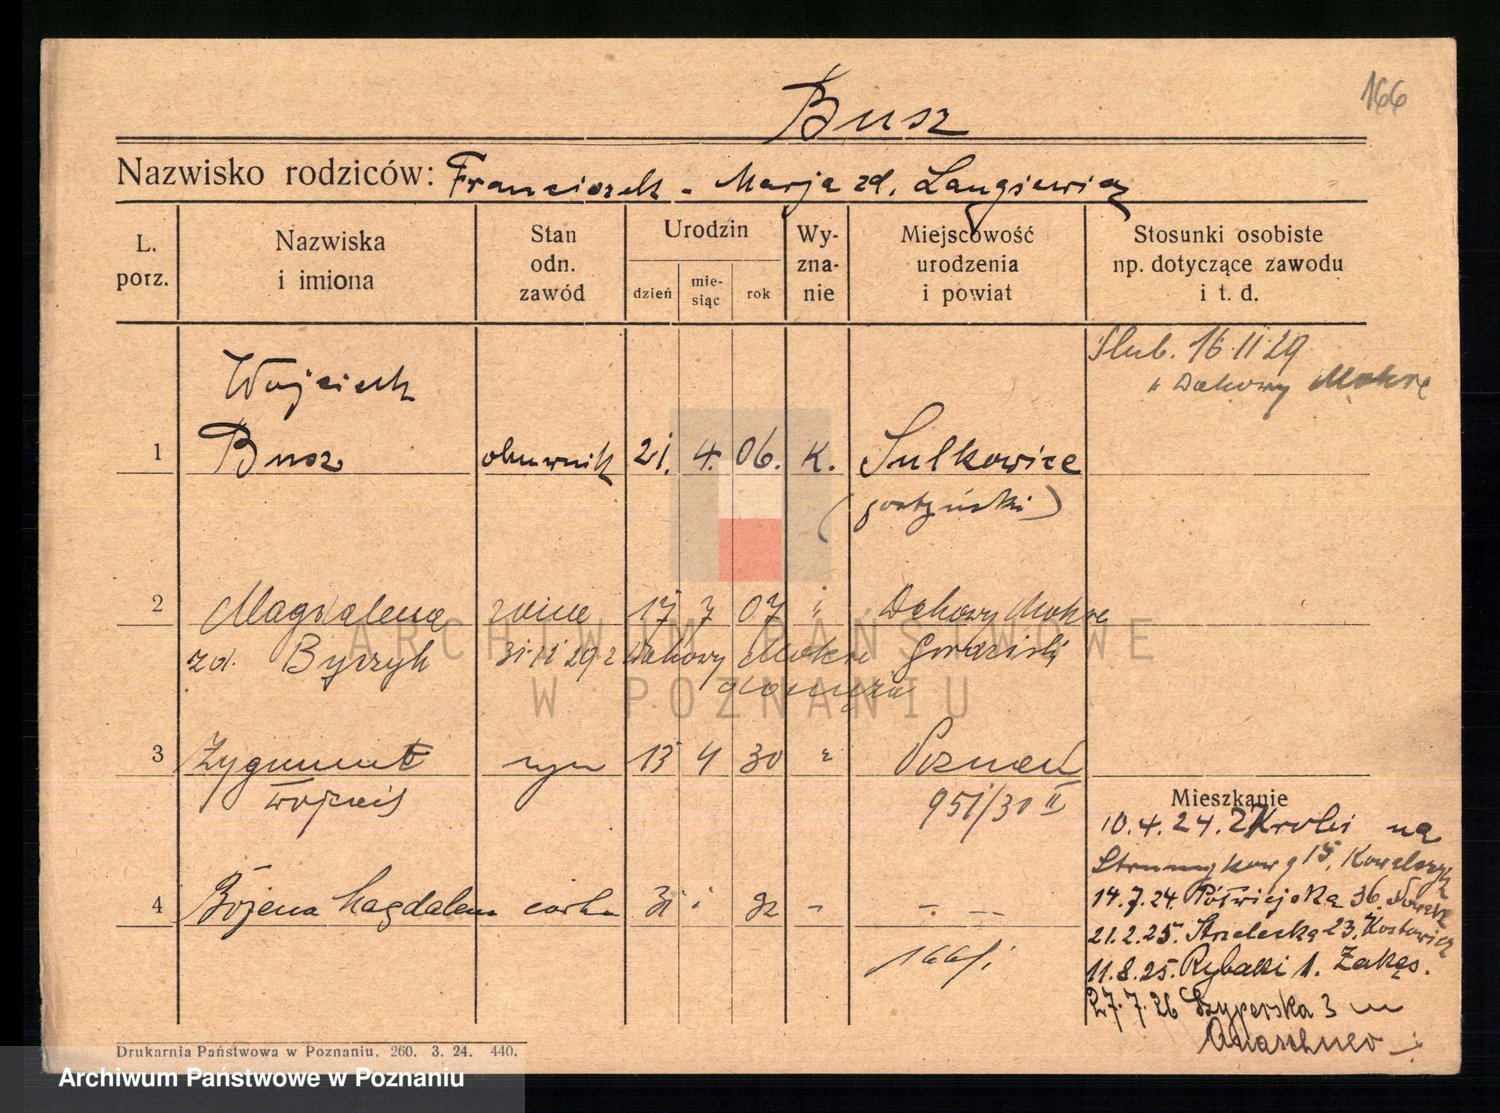 166
Busz
Nazwisko rodziców: Franciszek - Marja zd. Langiewicz
L. porz.
Nazwiska i imiona
Stan odn. zawód
Urodzin
dzień
mie-siąc
rok
Wy-zna-nie
Miejscowość urodzenia i powiat
Stosunki osobiste np. dotyczące zawodu i t. d.
Ślub. 16 11 29
" Dakowy Mokre
Wojciech
1 Busz obuwnik 21. 4. 06. K. Sulkowice
(gostyński)
2 Magdalena 17 7 07 " Dakowy Mokre
zd. Byczyk 31 11 29 z Dakowy Mokre Grodziski
3 Zygmunt syn 13 4 30 " Poznań
951/30 II
4 Bożena Magdalena córka 31 1 32 - - -
166/1
Mieszkanie
10. 4. 24. Z Krobi na
15, Kowalczyk
14. 7. 24. Półwiejska 36. Nowak
21. 2. 25. Strzelecka 23.
11. 8. 25. Rybaki 1. Zakęs.
27. 7. 26 Szyperska 3
Drukarnia Państwowa w Poznaniu. 260. 3. 24. 440.
ARCHIWUM PAŃSTWOWE
W POZNANIU
Archiwum Państwowe w Poznaniu